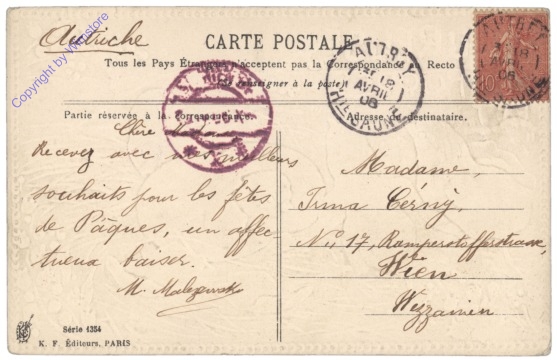 Autriche
CARTE POSTALE
Tous les Pays Étrangers n'acceptent pas la Correspondance au Recto
Se renseigner à la poste
Partie réservée à la correspondance. Adresse du destinataire.
AUTREY
18
AVRIL
06
Hte SAONE
Chère
Recevez avec mes meilleurs
souhaits pour les fêtes
de Pâques, un affec-
tueux baiser.
Madame,
Irma Cérny,
No 17,
Wien
Série 1354
K. F. Éditeurs, PARIS
Copyright by VIPstore